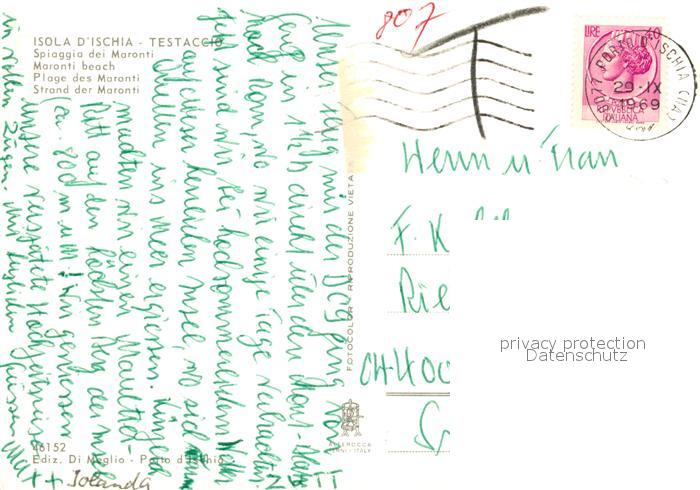 807
ISOLA D'ISCHIA - TESTACCIO
Spiaggia dei Maronti
Maronti beach
Plage des Maronti
Strand der Maronti
LIRE 40
80077 PORTO D'ISCHIA (NA)
29-IX
1969
REPUBBLICA
ITALIANA
Herrn u Frau
F. K
Rie
CH 400
privacy protection
Datenschutz
FOTOCOLOR - RIPRODUZIONE VIETATA
46152
Ediz. Di Meglio - Porto d'Ischia
Unser Flug mit der DC9 ging von
Genf in 1 1/2 h direkt über den Mont-Blanc
nach wo wir einige Tage verbrachten
Jetzt sind wir bei hochsommerlichem Wetter
auf dieser herrlichen Insel, wo sich
Quellen ins Meer ergiessen. Kürzlich
machten wir einen Maultier-
ritt auf den höchsten Berg der Insel
(ca. 800 m ü M) Wir geniessen
unsere verspätete Hochzeitsreise
in vollen Zügen. Mit herzlichen Grüssen
Iolanda